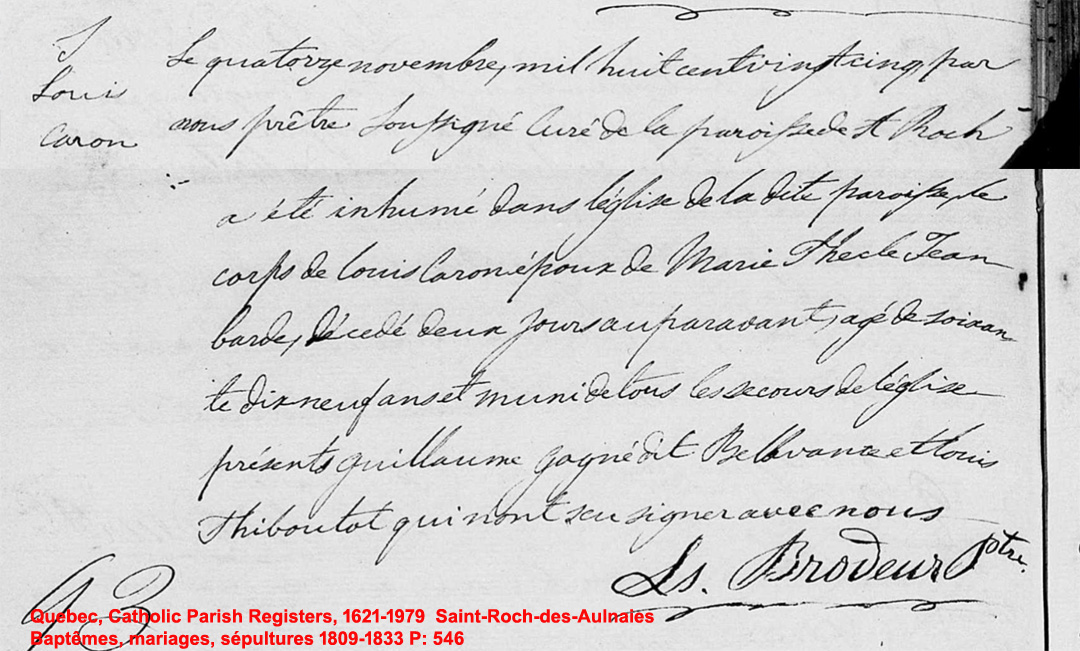 S
Louis
Caron
Le quatorze novembre, mil huit cent vingt cinq, par
nous prêtre Soussigné Curé de la paroisse de St Roch
a été inhumé dans l'église de la dite paroisse, le
corps de Louis Caron époux de Marie Thecle Jean
barde, décedé deux jours auparavant, agé de soixan
te dix neuf ans et muni de tous les secours de l'église
présents guillaume gagné dit Bellavance et Louis
Thiboutot qui n'ont seu signer avec nous
Ls. Brodeur Ptre.
93
Quebec, Catholic Parish Registers, 1621-1979 Saint-Roch-des-Aulnaies
Baptêmes, mariages, sépultures 1809-1833 P: 546